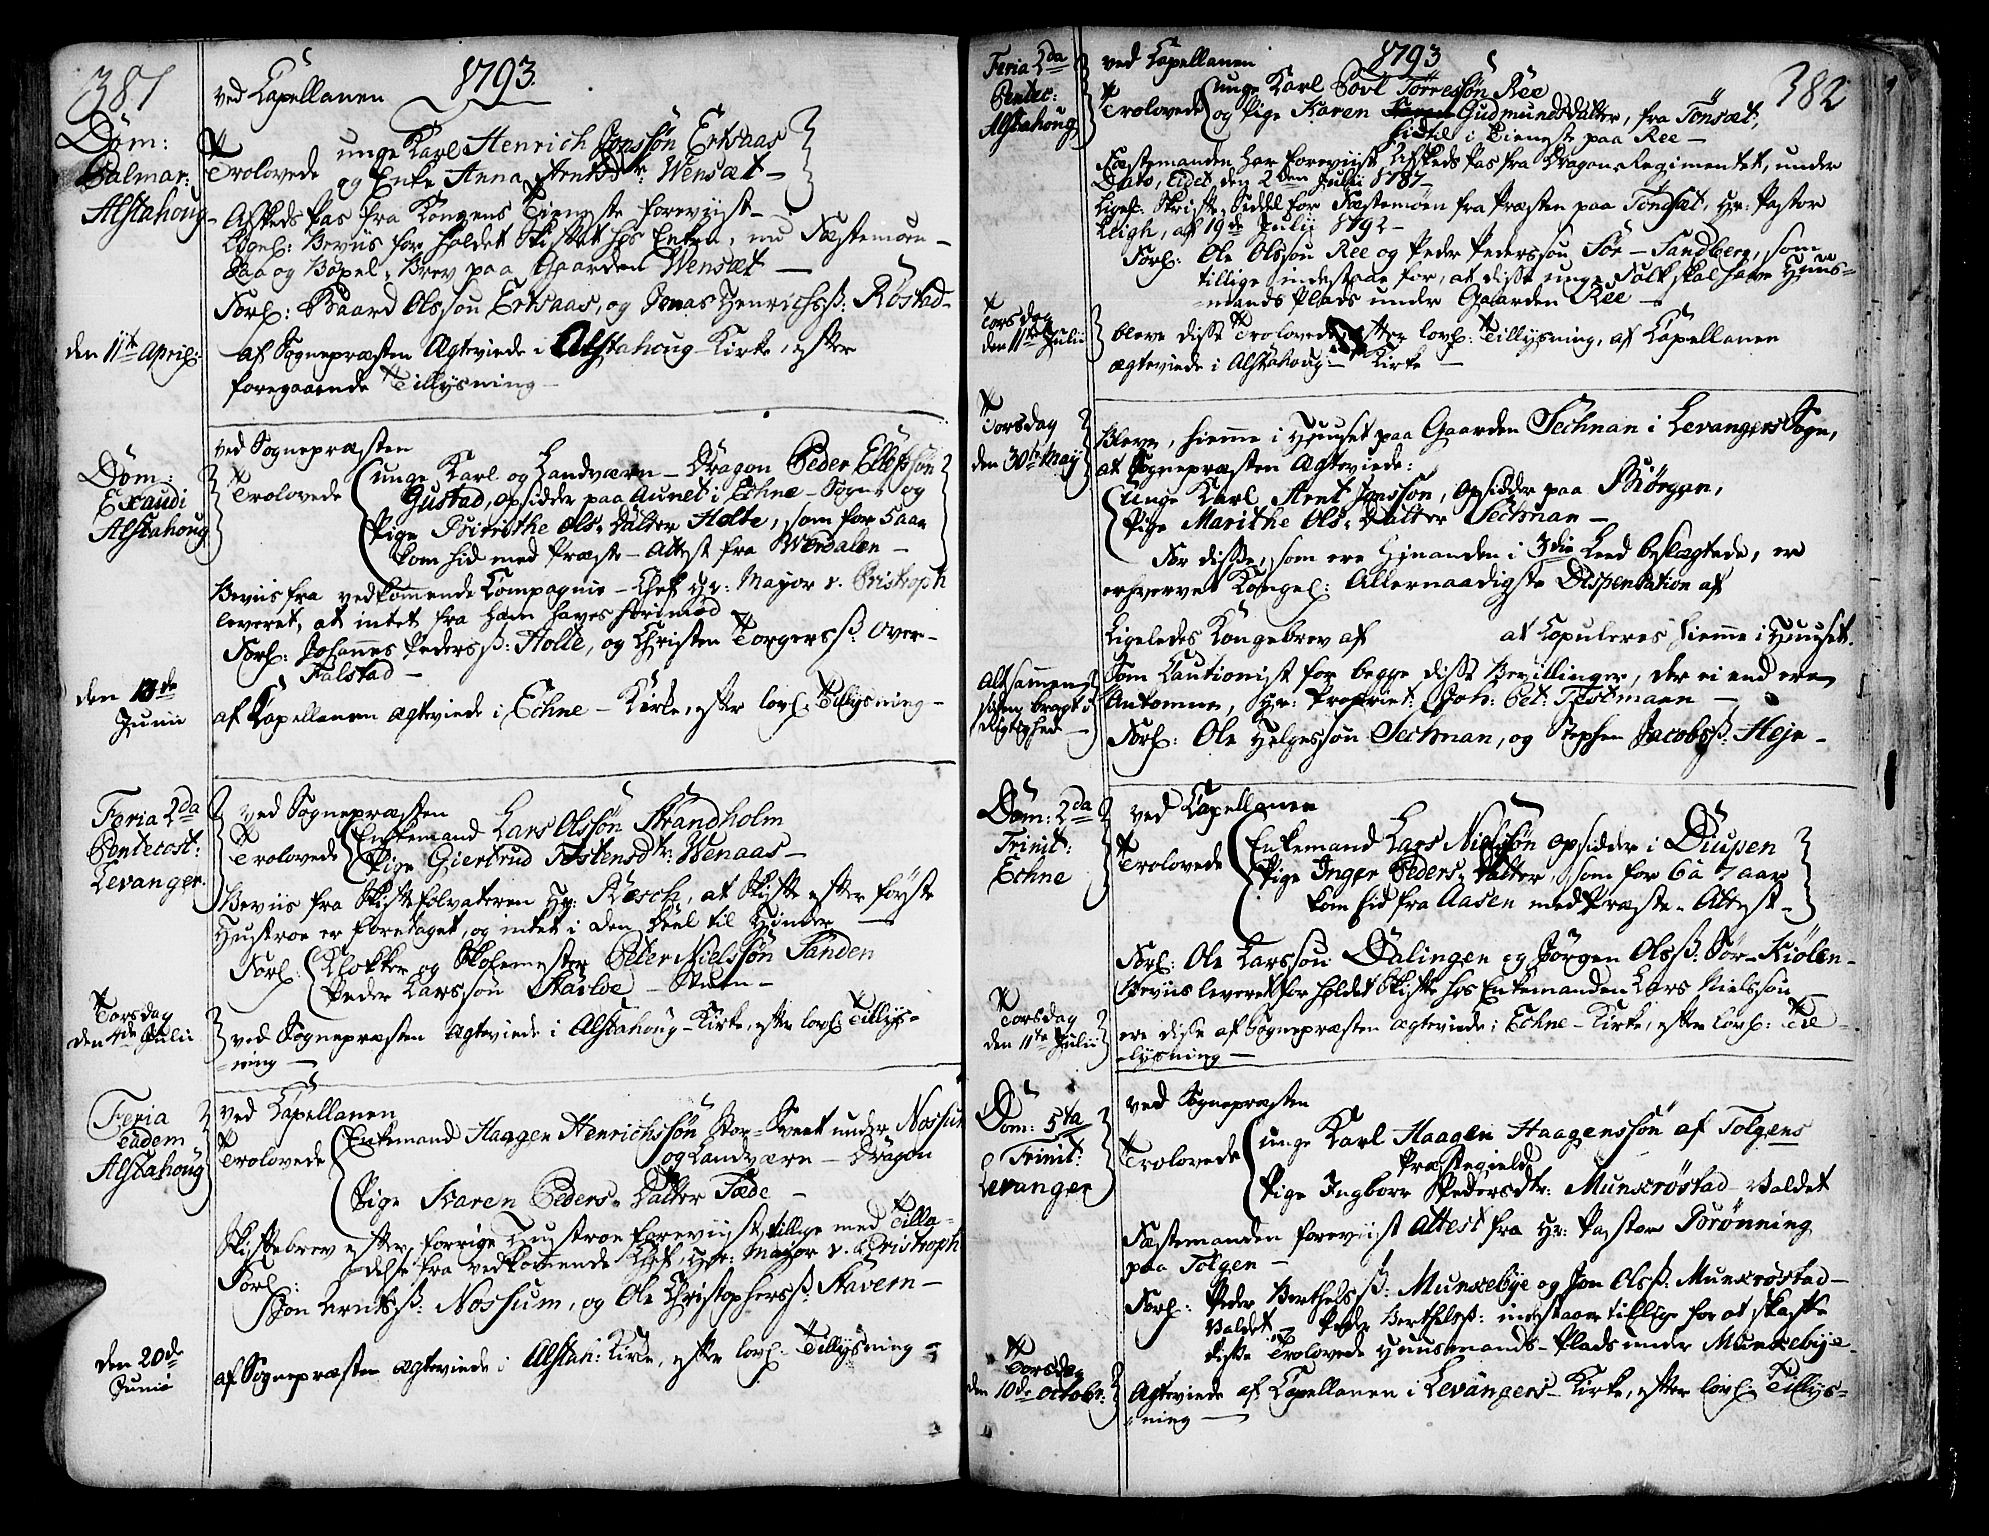 381
1793
Dom:
Palmar:
Alstahoug
ved Capellanen
Trolovede
unge Karl Henrich Jonssøn Ertsaas
og Enke Anna Arntsdtr: Wensæt
Afskeds Pas fra Kongens Tieneste foreviist
Ligel: Beviis for holdet Skiftet hos Enken, nu Fæstemøen
Saa og Bøxel-Brev paa Gaarden Wensæt
Forl: Baard Olssøn Ertsaas, og Jonas Henrichsß: Røstad
den 11te April:
af Sognepræsten Ægteviede i Alstahoug-Kirke, efter
foregaaende Tillysning
Dom:
Exaudi
Alstahoug
ved Sognepræsten
Trolovede
unge Karl og Landværn-Dragon Peder Ellefssøn
Gustad, opsidder paa Aunet i Echne-Sogn og
Pige Birrithe Ols-Datter Holte, som for 5 aar
kom hid med Præste-Attest fra Werdalen
Beviis fra vedkommende Compagnie-Chef Hr: Mayor v. Pristroph
leveret, at intet fra ham haves herimod
Forl: Johannes Pedersß: Holte, og Christen Torgersß. Over-
Falstad
den 13de
Junii
af Capellanen ægteviede i Echne-Kirke, efter lovl. Tillysning
Feria 2da
Pentecost:
Levanger
ved Sognepræsten
Trolovede
Enkemand Lars Olssøn Strandholm
Pige Giertrud Tostensdtr: Wenaas
Beviis fra Skifteforvalteren Hr: Ræsch, at Skifte efter første
Hustroe er foretaget, og intet i den Deel til Hinder
Forl:
Klokker og Skolemester Peter Nielssøn Sanden
Peder Larssøn Skarlde-Stuen
Torsdag
den 4de Julii
ved Sognepræsten Ægteviede i Alstahoug-Kirke, efter lovl: Tillys-
ning
Feria
Eadem
Alstahoug
ved Capellanen
Trolovede
Enkemand Haagen Henrichssøn Stor-Sveet under Nossum
og Landværn-Dragon
Pige Karen Peders-Datter Fæde
Skiftebrev efter forrige Hustroe foreviist, tillige med Tilla-
delse fra vedkommende Chef, Hr: Mayor v. Pristroph
Forl:
Jon Arntsß: Nossum, og Ole Christophersß: Stavern
den 20de
Junii
af Sognepræsten ægteviede i Alstah: Kirke, efter lovl. Tillysning
382
1793
Feria 2da
Pentec:
Alstahoug
ved Capellanen
Trolovede
unge Karl Povl Torressøn Ree
og Pige Karen Gudmundsdatter, fra Tønsæt,
hidtil i Tieneste paa Ree
Fæstemanden har foreviist Afskeds Pas fra Dragon-Regimentet, under
Dato, Eidet den 2den Julii 1787
Ligel: Skrifte-Seddel for Fæstemøen fra Præsten paa Tønsæt, Hr: Pastor
Leigh, af 19de Julii 1792
Forl: Ole Olssøn Ree og Peder Pederssøn Sør-Sandberg, som
tillige indestaae for, at disse unge Folk skal have Huus-
mands Plads under Gaarden Ree
Torsdag
den 11te Julii
bleve disse Trolovede, efter lovl: Tillysning, af Capellanen
ægteviede i Alstahoug-Kirke
Torsdag
den 30te May
Bleve, hiemme i Huuset paa Gaarden Sechnan i Levangers Sogn,
af Sognepræsten Ægteviede:
Unge Karl Arnt Jonssøn, opsidder paa Biørgan,
Pige Marithe Ols-Datter Sechnan
For disse, som ere hinanden i 3die Leed beslægtede, er
erhvervet Kongel: Allernaadigste Dispensation af
Ligeledes Kongebrev af at Copuleres hiemme i Huuset.
Altsammen
siden bragt i
Rigtighed
Som Cautionist for begge disse Bevillinger, der ei end ere
Ankomne, Hr: Propriet: Joh: Pet: Testmann
Forl: Ole Helgessøn Sechnan, og Stephen Jacobsß: Heje
Dom: 2da
Trinit:
Echne
ved Capellanen
Trolovede
Enkemand Lars Nielssøn opsidder i Duipen
Pige Inger Peders-Datter, som for 6 a 7 aar
kom hid fra Aasen med Præste-Attest
Forl: Ole Larssøn Dalingen og Jørgen Olsß: Sør-Kiølen
Beviis leveret for holdet Skifte hos Enkemanden Lars Nielssøn
Torsdag
den 11te Julii
ere disse af Sognepræsten ægteviede i Echne-Kirke, efter lovl: Til-
lysning
Dom: 5ta
Trinit:
Levanger
ved Sognepræsten
Trolovede
unge Karl Haagen Haagenssøn af Tolgens
Præstegield
Pige Ingborr Pedersdtr: Munkrøstad-Valdet
Fæstemanden foreviist Attest fra Hr: Pastor Brønning
paa Tolgen
Forl: Peder Berthelsß: Munkebye og Jon Olsß: Munkrøstad-
Valdet
Peder Berthelsß: indestaaer tillige for at skaffe
disse Trolovede Huusmands-Plads under Munkebye
Torsdag
den 10de Octobr:
Ægteviede af Capellanen i Levangers-Kirke, efter lovl. Tillys-
ning